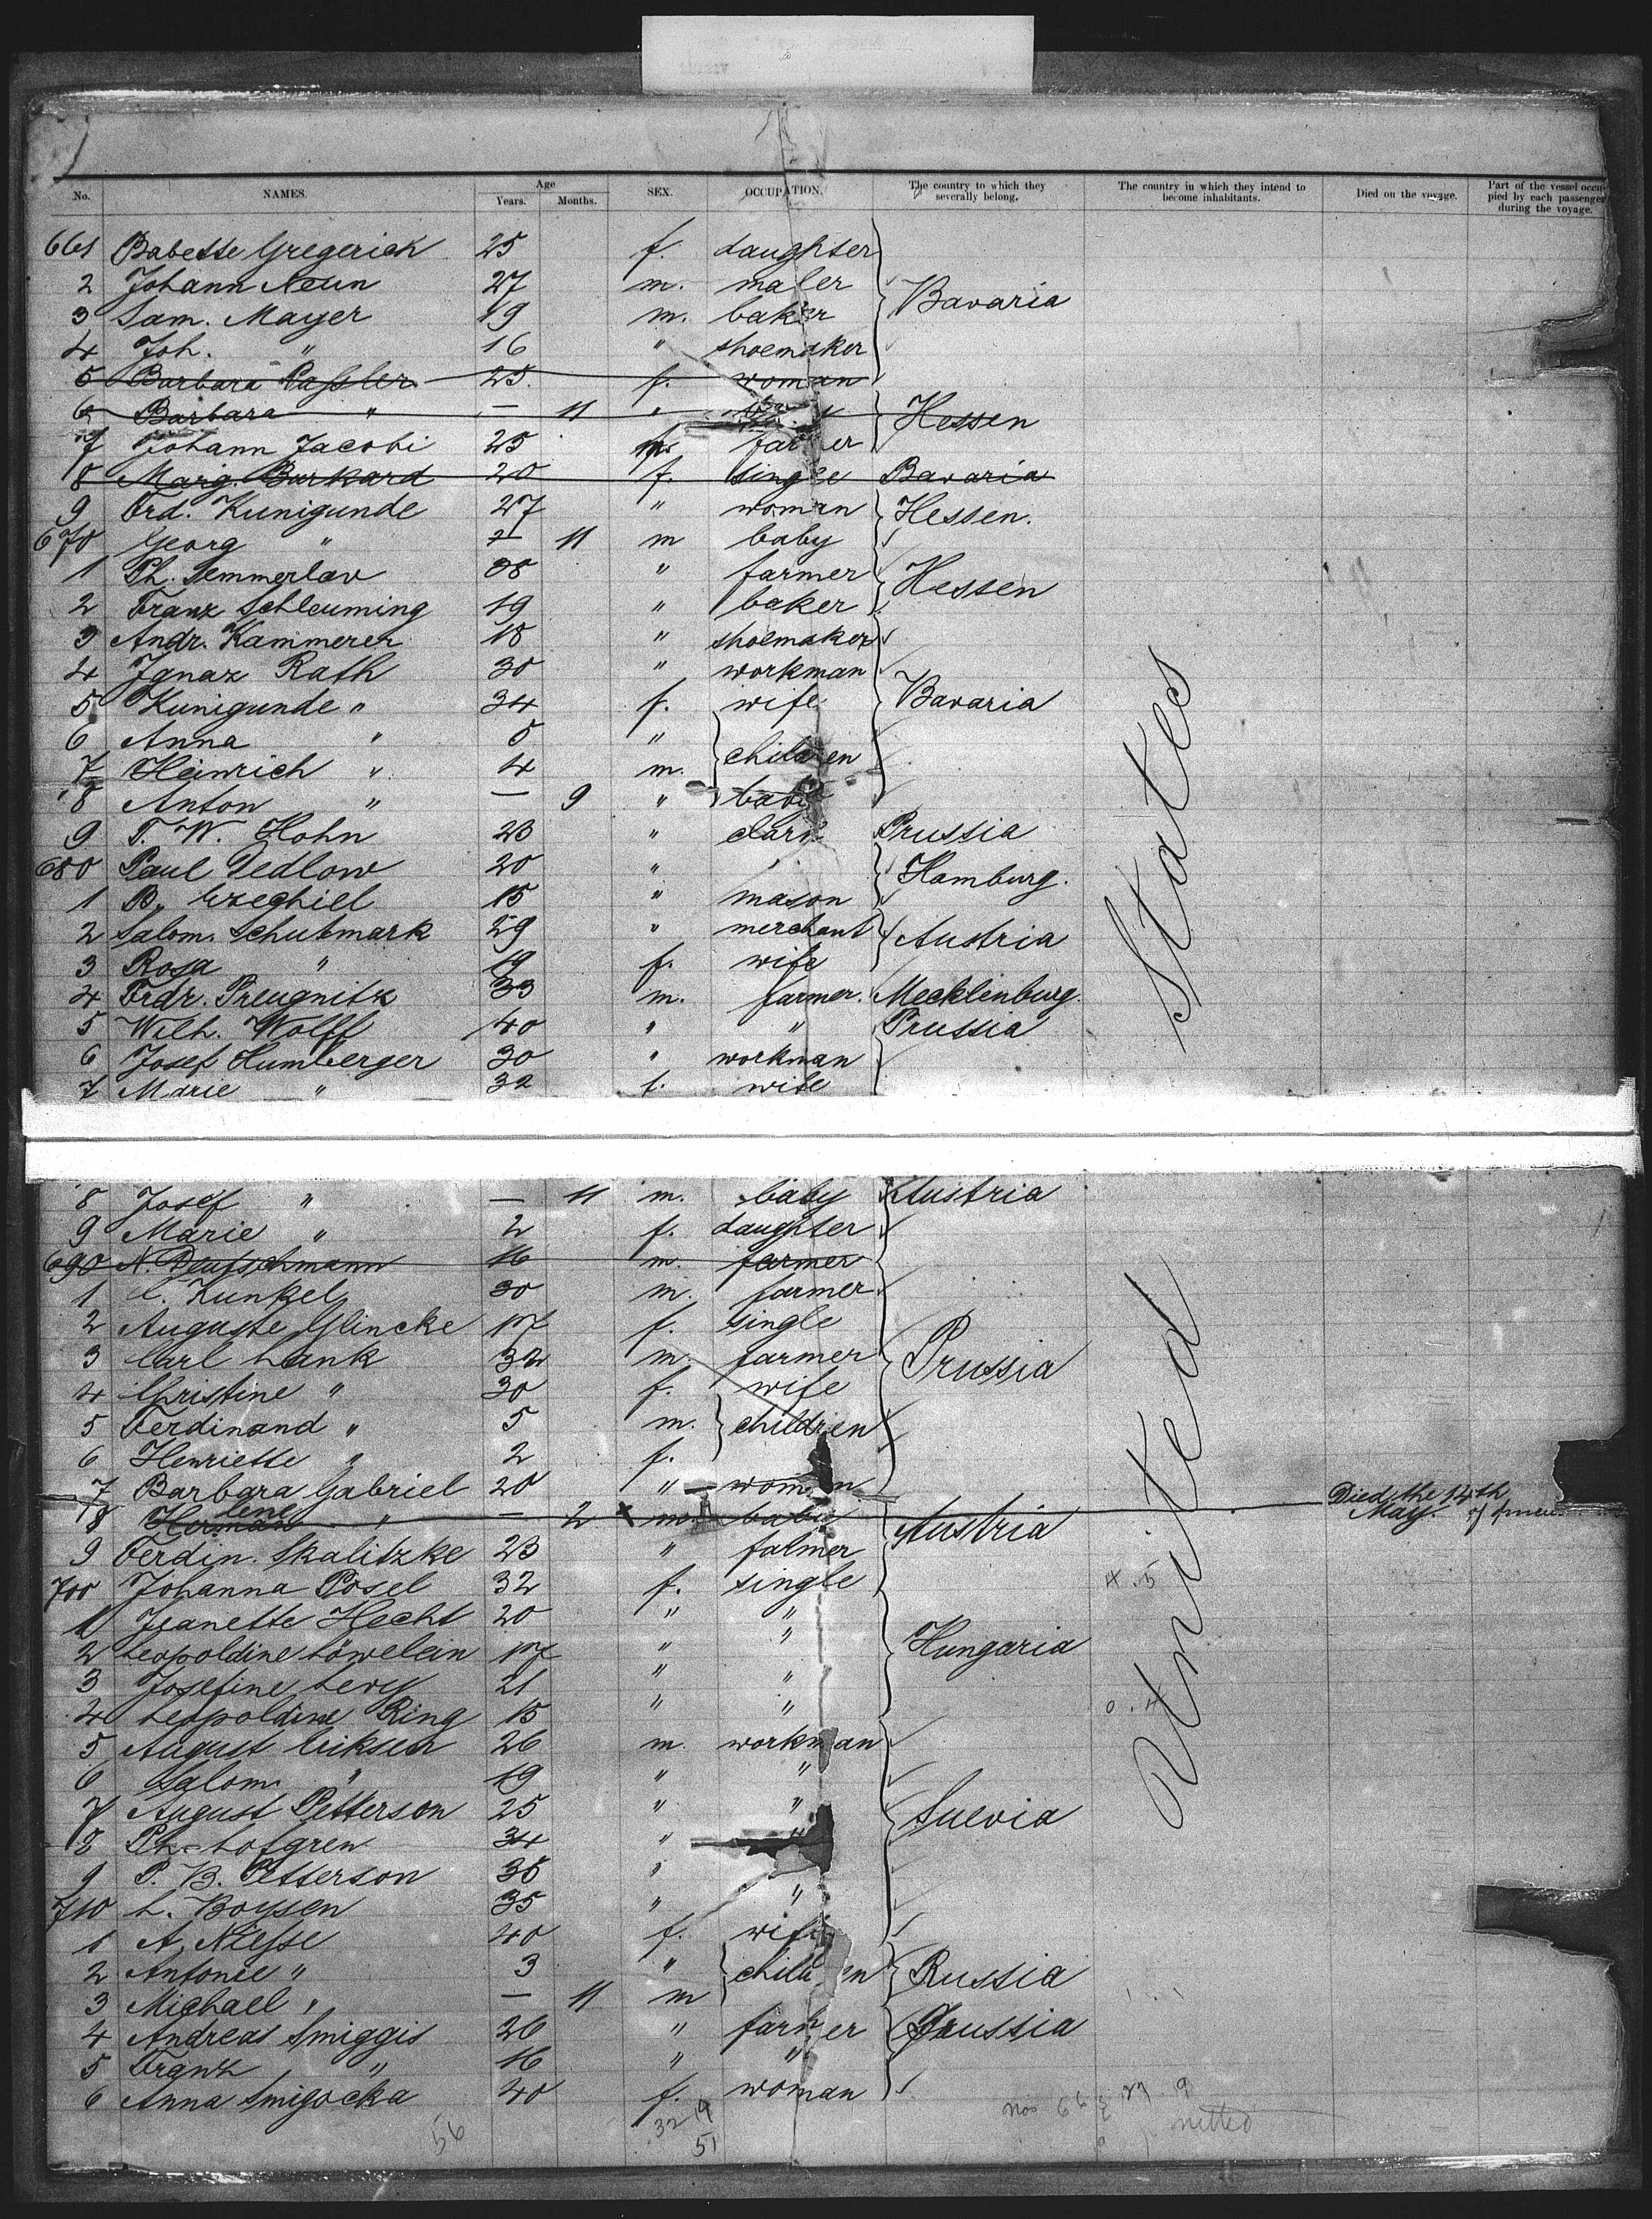 No. NAMES. Age Years. Months. SEX. OCCUPATION. The country to which they severally belong. The country in which they intend to become inhabitants. Died on the voyage. Part of the vessel occupied by each passenger during the voyage.
661 Babette Gregerich 25 f. daughter
2 Johann Neun 27 m. maler
3 Sam. Mayer 19 m. baker Bavaria
4 Joh. " 16 " shoemaker
5 Barbara Passler 25. f. woman
6 Barbara " — 11 "
7 Johann Jacobi 25 m. farmer Hessen
8 Marg. Burkard 20 f. single Bavaria
9 Frd. Kunigunde 27 " woman Hessen.
670 Georg " 11 m baby
1 Ph. Semmerlav 38 " farmer Hessen
2 Franz Schleuming 19 " baker
3 Andr. Kammerer 18 " shoemaker
4 Ignaz Rath 30 " workman
5 Kunigunde " 34 f. wife Bavaria
6 Anna " 5 " children
7 Heinrich " 4 m.
8 Anton " — 9 " baby
9 T. W. Hohn 23 " clark Prussia
680 Paul Sedlow 20 " Hamburg.
1 B. Ezechiel 15 " mason
2 Salom. Schubmark 29 " merchant Austria
3 Rosa " 19 f. wife
4 Frdr. Preugnitz 33 m. farmer. Mecklenburg.
5 Wilh. Wolff 40 " " Prussia
6 Josef Humberger 30 " workman
7 Marie " 32 f. wife
8 Josef " — 11 m. baby Austria
9 Marie " 2 f. daughter
690 N. Deutschmann 16 m. farmer
1 C. Kunkel 30 m. farmer
2 Auguste Glincke 17 f. single
3 Carl Lank 32 m. farmer Prussia
4 Christine " 30 f. wife
5 Ferdinand " 5 m. children
6 Henriette " 2 f.
7 Barbara Gabriel 20 " woman
8 Herman lene " — 2 x m. baby Austria Died the 14th May. of
9 Ferdin. Skalitzke 23 " falmer
700 Johanna Posel 32 f. single
1 Jeanette Hecht 20 " "
2 Leopoldine Löwelein 17 " " Hungaria
3 Josefine Levy 21 " "
4 Leopoldine Ring 15 " "
5 August Eriksen 26 m. workman
6 Salom. " 19 " "
7 August Petterson 25 " " Suevia
8 Ph. Lofgren 34 " "
9 P. B. Petterson 35 "
710 L. Boysen 35 " "
1 A. Niesse 40 f. wife
2 Antonie " 3 " children Russia
3 Michael " — 11 m
4 Andreas Smiggis 26 " farmer Prussia
5 Frantz " 16 " "
6 Anna Smigocka 40 f. woman
United States
56
32 19
51